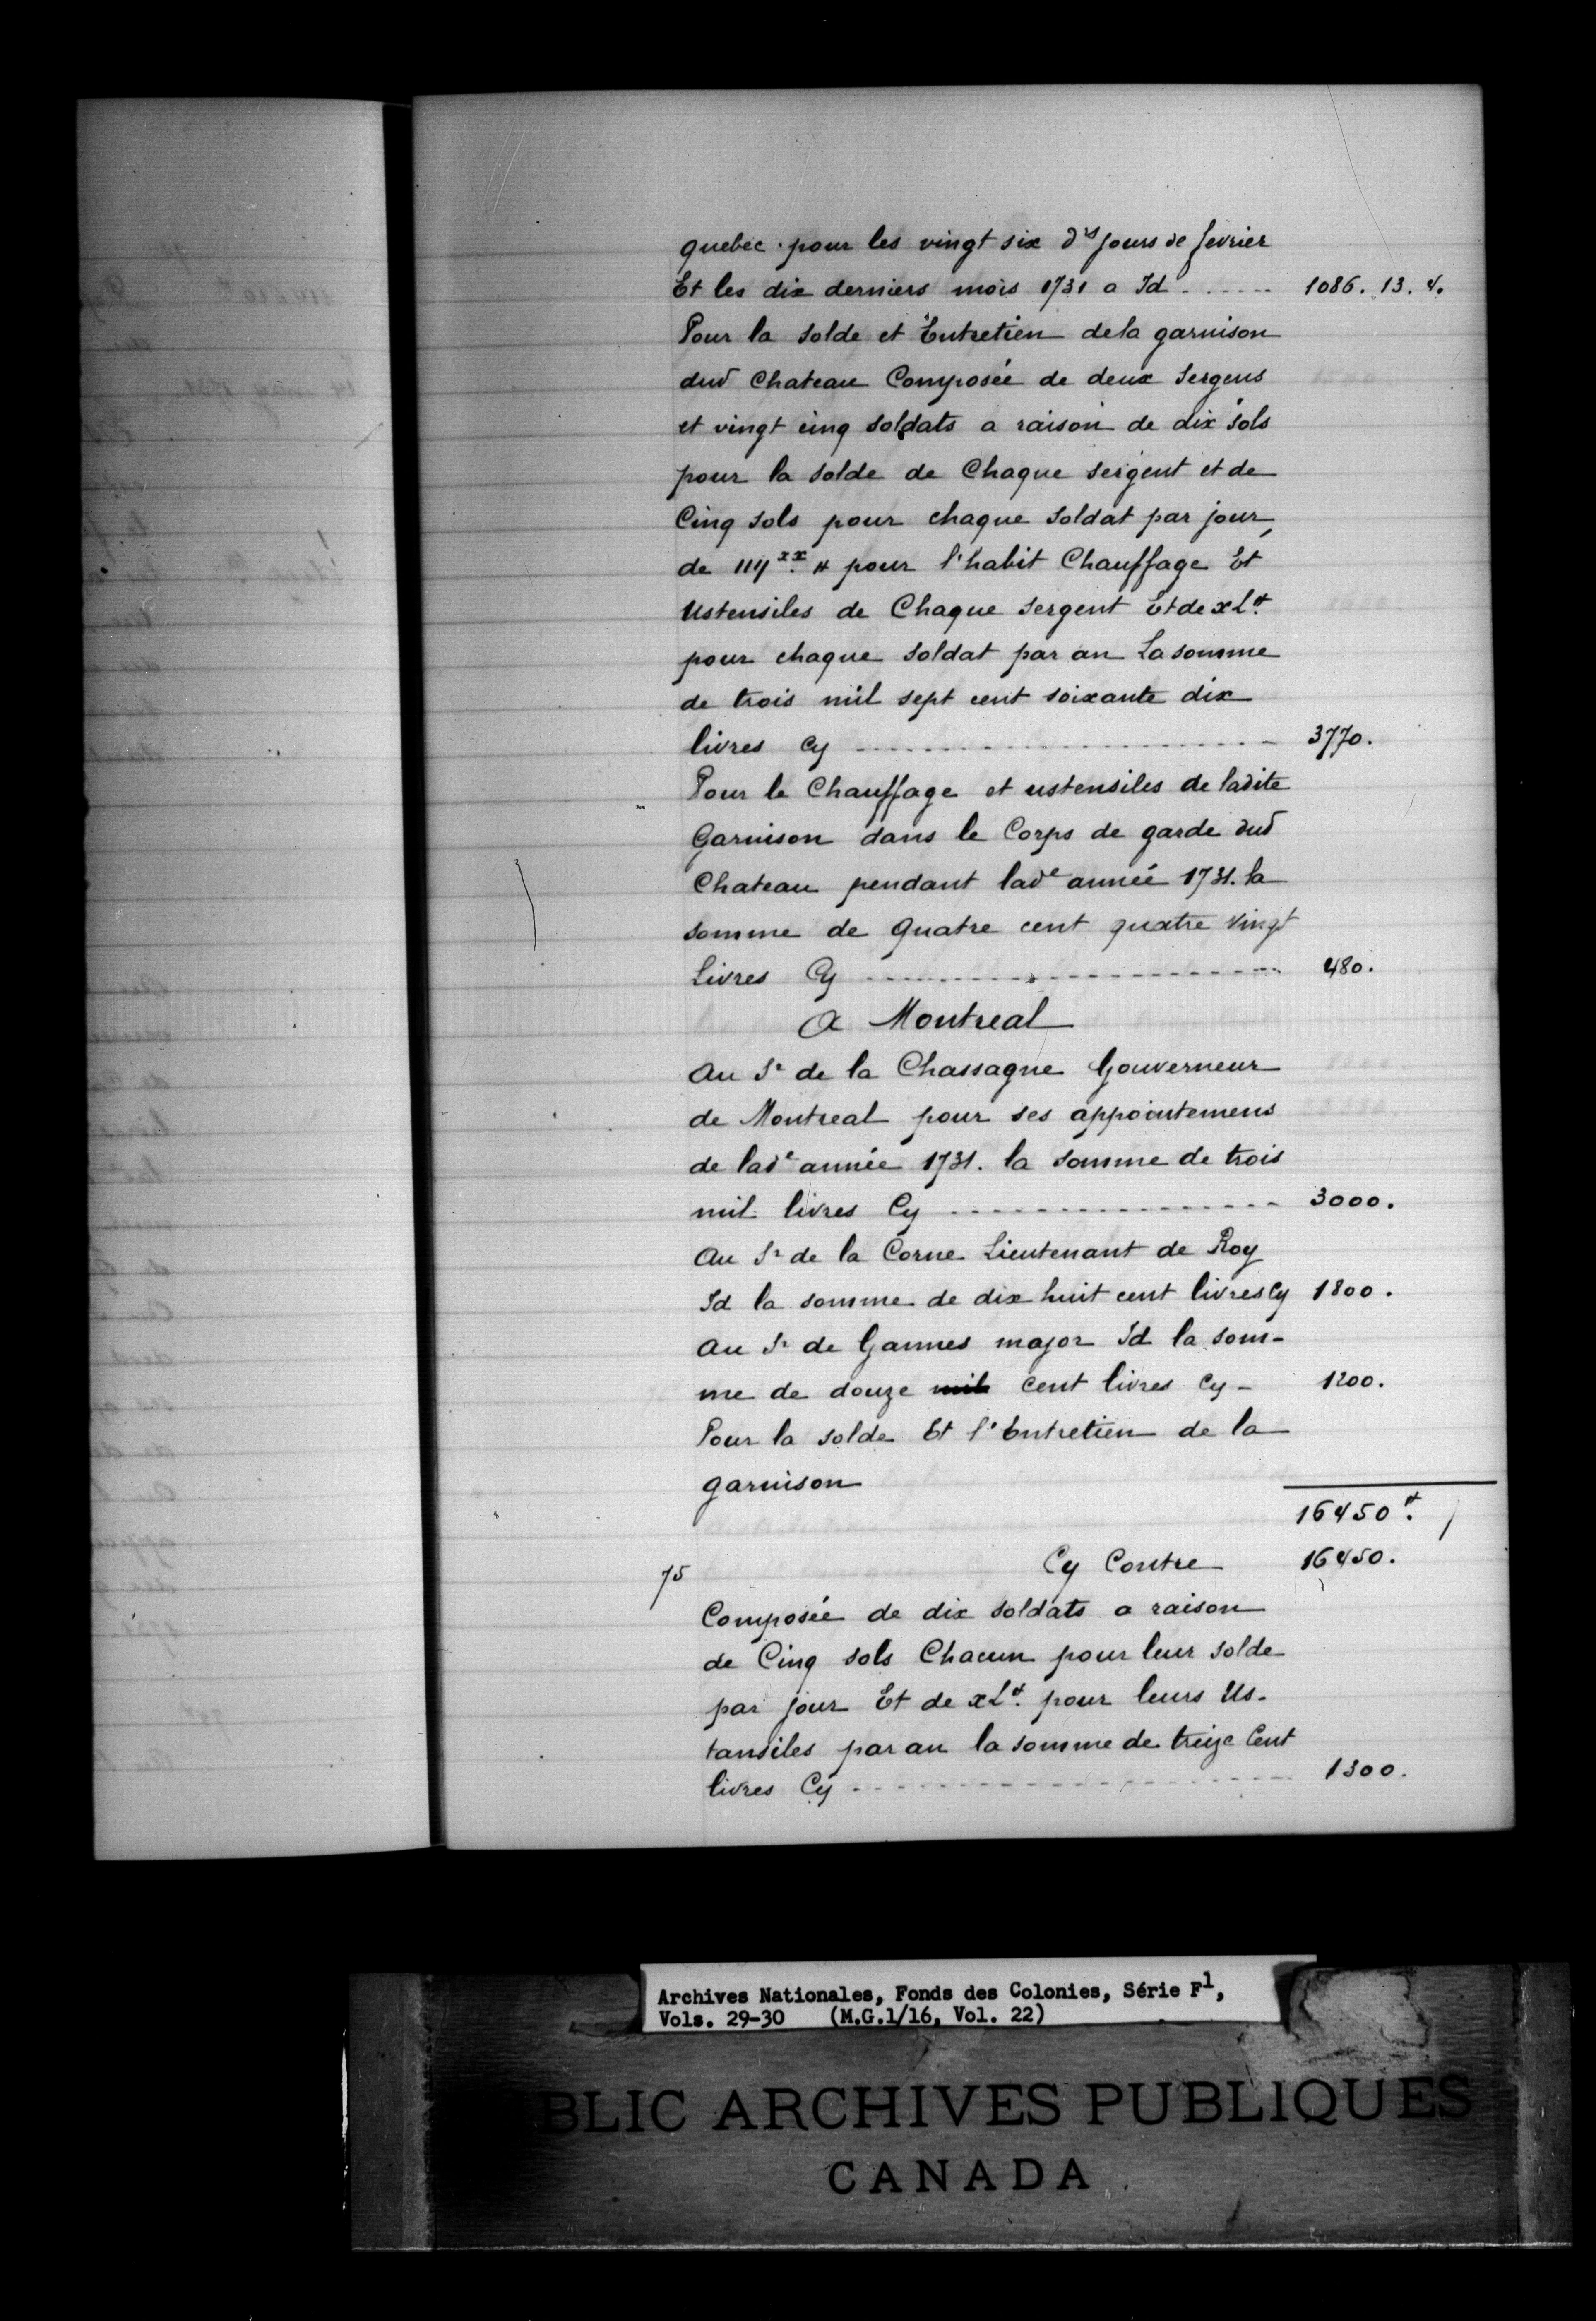 quebec pour les vingt six d^rs jours de fevrier
Et les dix derniers mois 1731 a Id ...... 1086. 13. 4.
Pour la solde et Entretien dela garnison
dud Chateau Composée de deux Sergens
et vingt cinq soldats a raison de dix sols
pour la solde de Chaque sergent et de
Cinq sols pour chaque soldat par jour,
de IIII^xx. ₶ pour l'habit Chauffage Et
Ustensiles de Chaque Sergent Et de xL₶.
pour chaque soldat par an La somme
de trois mil sept cent soixante dix
livres Cy ------------------- 3770.
Pour le Chauffage et ustensiles de ladite
Garnison dans le Corps de garde dud
Chateau pendant lad^e année 1731. la
somme de Quatre cent quatre vingt
Livres Cy ------------------- 480.
A Montreal
Au S^r de la Chassagne Gouverneur
de Montreal pour ses appointemens
de lad^e année 1731. la somme de trois
mil livres Cy ---------------- 3000.
Au S^r de la Corne Lieutenant de Roy
Id la somme de dix huit cent livres Cy 1800.
Au S^r de Gannes major Id la som-
me de douze mil cent livres Cy - 1200.
Pour la solde Et l'Entretien de la
garnison
16450₶.
75 Cy Contre 16450.
Composée de dix soldats a raison
de Cinq sols Chacun pour leur solde
par jour Et de xL₶. pour leurs Us-
tansiles par an la somme de treize Cent
livres Cy ------------------- 1300.
Archives Nationales, Fonds des Colonies, Série F1,
Vols. 29-30 (M.G.1/16, Vol. 22)
BLIC ARCHIVES PUBLIQUES
CANADA